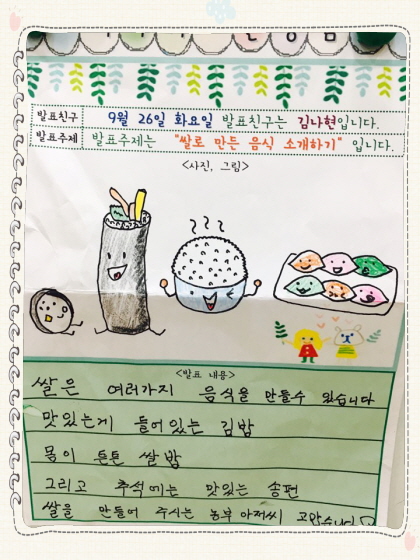 발표친구 9월 26일 화요일 발표친구는 김나현입니다.
발표주제 발표주제는 "쌀로 만든 음식 소개하기" 입니다.
<사진, 그림>
<발표 내용>
쌀은 여러가지 음식을 만들수 있습니다
맛있는게 들어있는 김밥
몸이 튼튼 쌀밥
그리고 추석에는 맛있는 송편
쌀을 만들어 주시는 농부 아저씨 고맙습니다